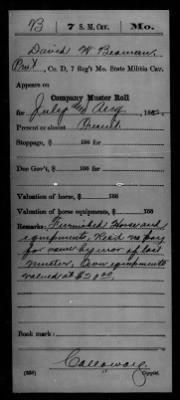 B 7 S. M. Cav. Mo.
David W Beaman
Pvt, Co. D, 7 Reg't Mo. State Militia Cav.
Appears on
Company Muster Roll
for July and Aug, 1862.
Present or absent Present
Stoppage, $ 100 for
Due Gov't, $ 100 for
Valuation of horse, $ 100
Valuation of horse equipments, $ 100
Remarks: Furnished Horse and
equipments. Recd no pay
for same by error of last
muster. Own equipments
valued at $20.00
Book mark:
Calloway
(359) Copyist.